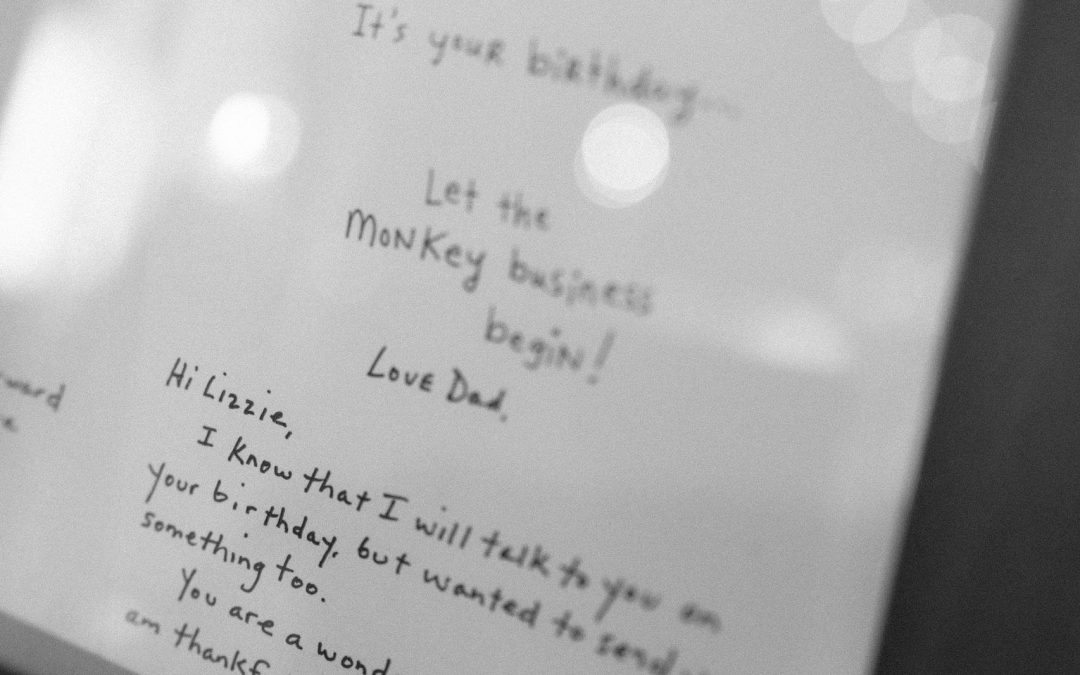 It's your birthday...
Let the
Monkey business
begin!
Love Dad.
Hi Lizzie,
I know that I will talk to you on
your birthday, but wanted to send
something too.
You are a
am